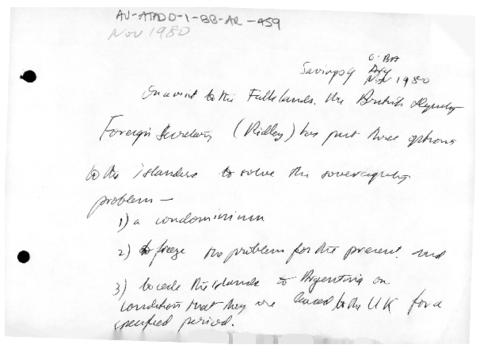 AU-ATADD-1-BB-AR-459
Nov 1980
B.A
Nov 1980
On a visit to the Falklands, the British Deputy
Foreign Secretary (Ridley) has put three options
to the islanders to solve the sovereignty
problem —
1) a condominium
2) to freeze the problem for the present, and
3) to cede the islands to Argentina on
condition that they are leased to the UK for a
specified period.